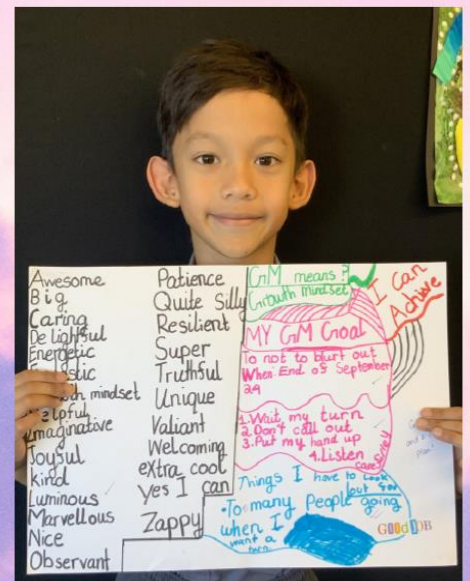 Awesome
Big
Caring
Delightful
Energetic
mindset
Imaginative
Joyful
kind
Luminous
Marvellous
Nice
Observant
Patience
Quite Silly
Resilient
Super
Truthful
Unique
Valiant
Welcoming
eXtra cool
Yes I can
Zappy
GM means?
Growth Mindset
I can
Achieve
MY GM Goal
To not to blurt out
When End of September
29
1. Wait my turn
2. Don't call out
3. Put my hand up
4. Listen
carefully
Things I have to look
out for
• To many People going
when I
want a
turn
GOOD JOB